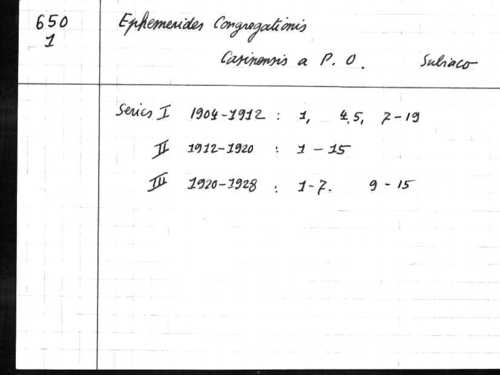 650
1
Ephemerides Congregationis
Casinensis a P. O. Subiaco
Series I 1904-1912 : 1, 4.5, 7-19
II 1912-1920 : 1 - 15
III 1920-1928 : 1-7. 9-15